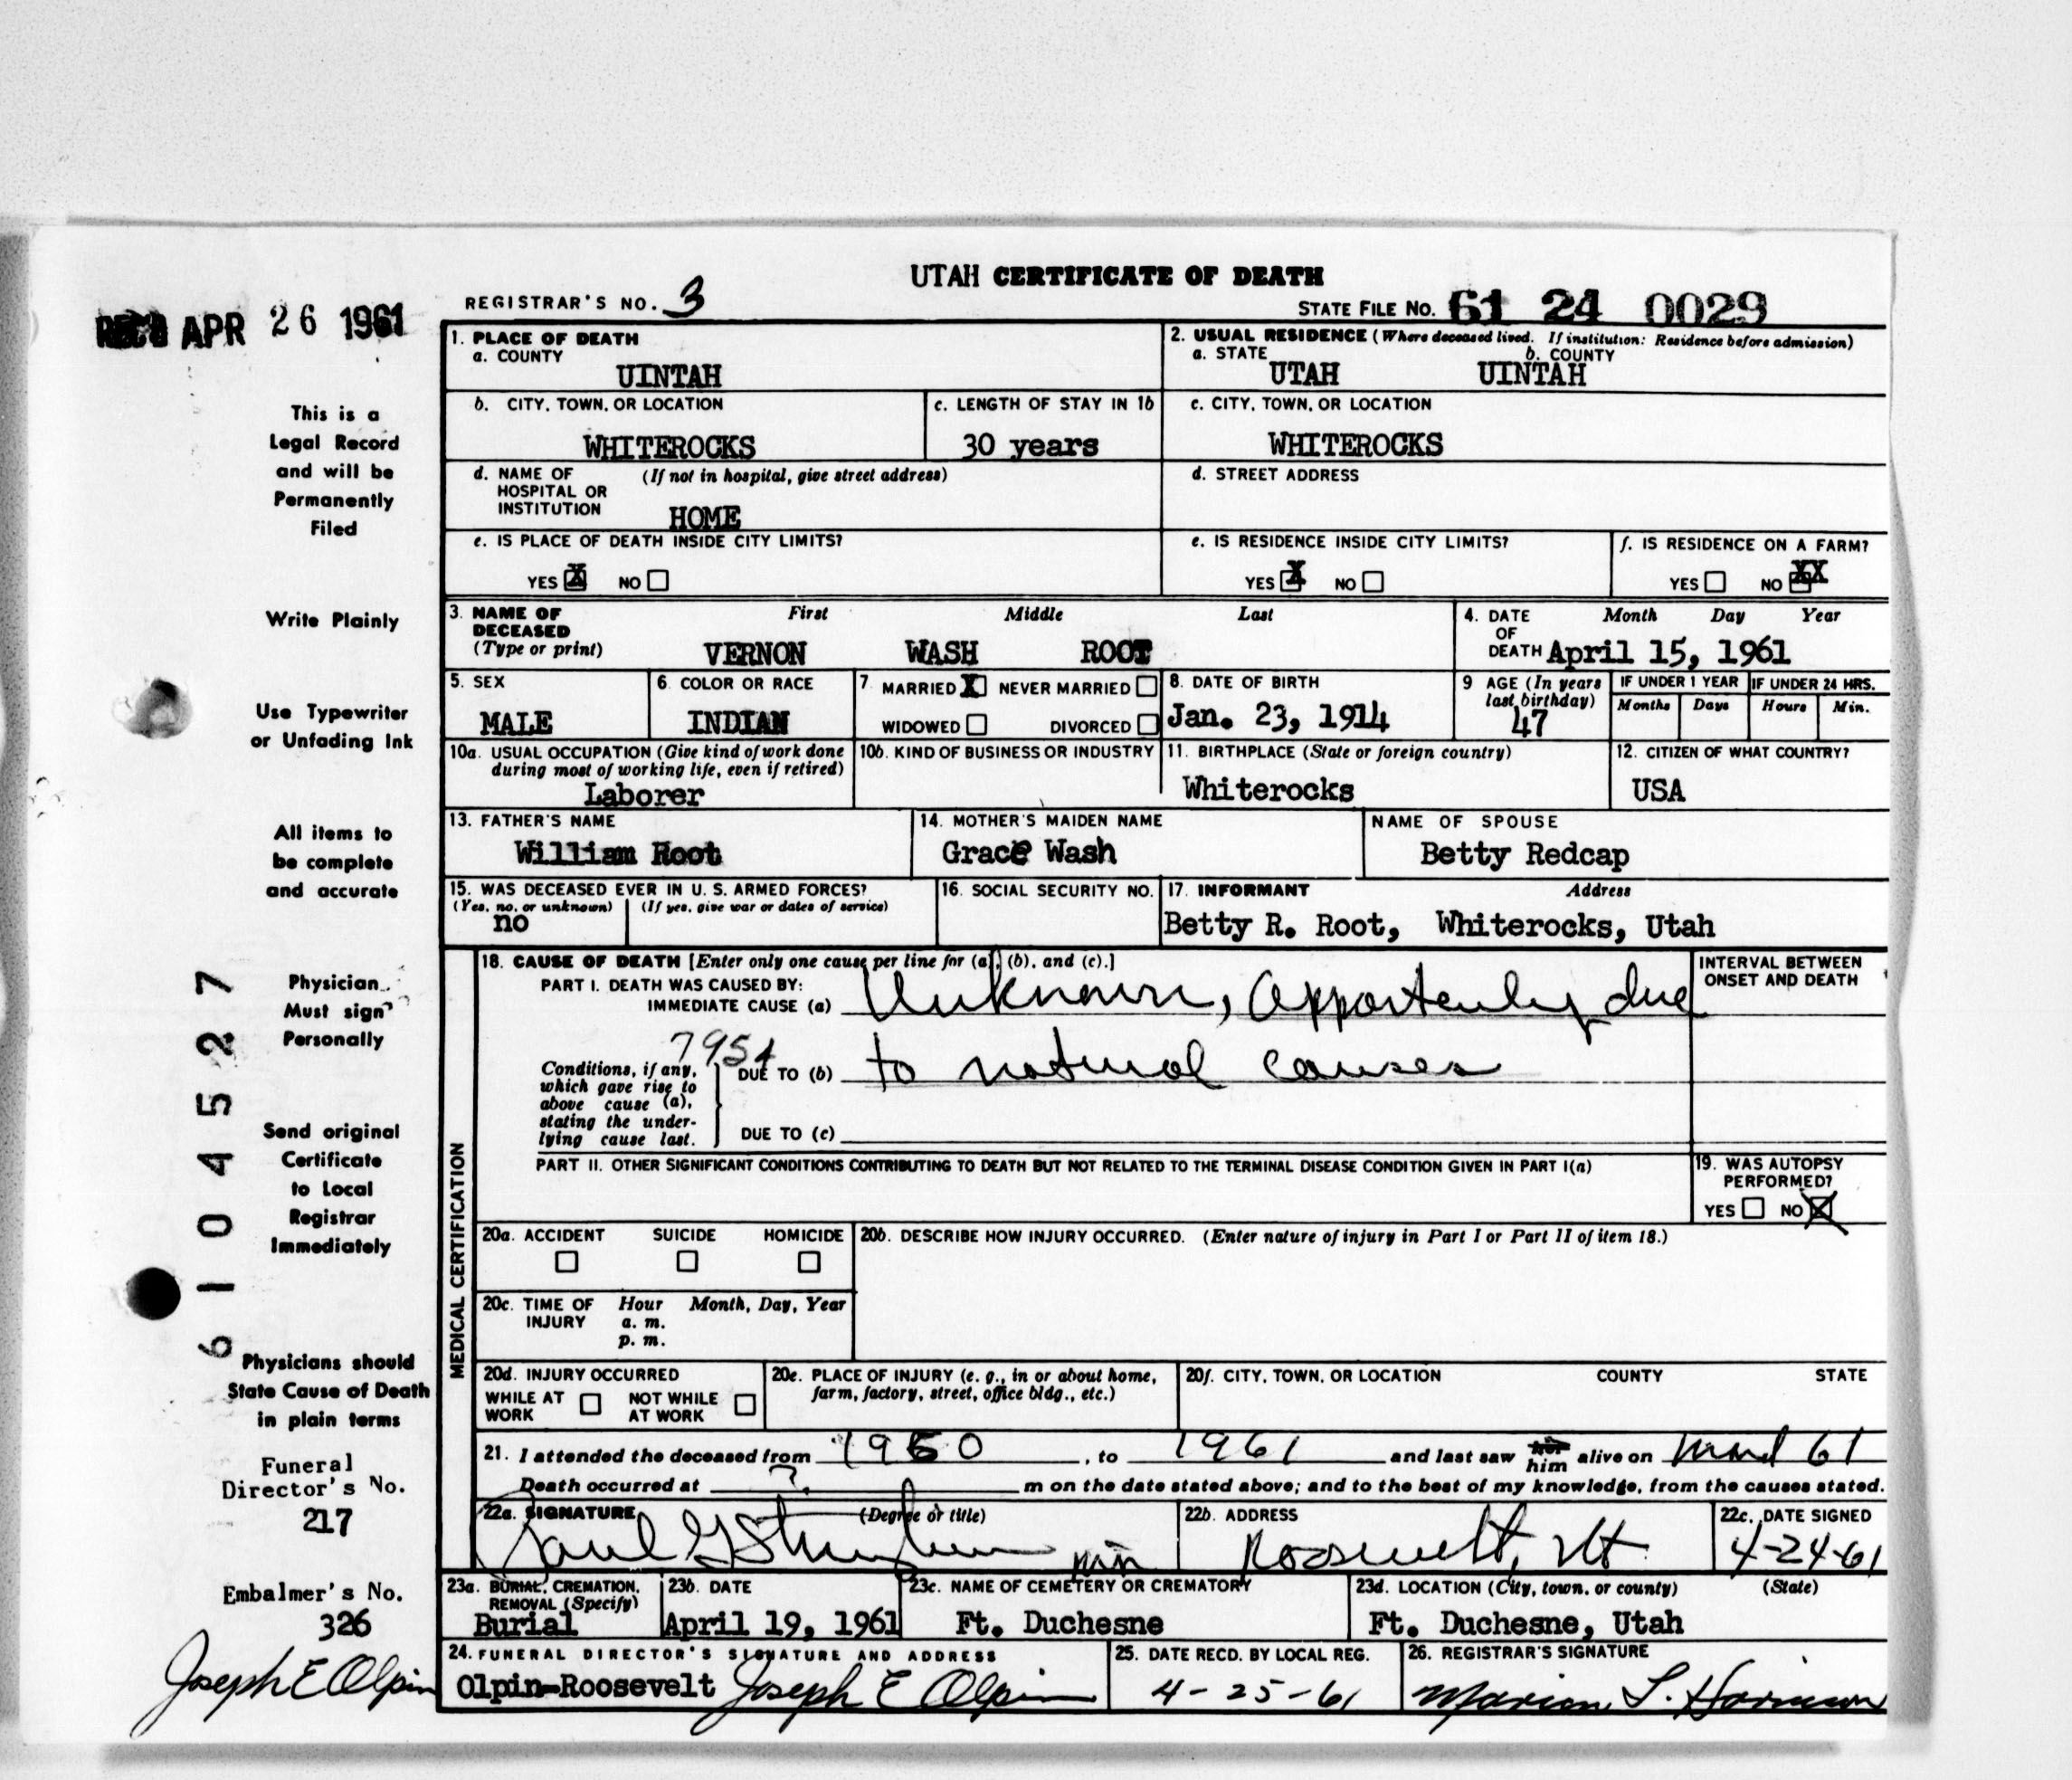 UTAH CERTIFICATE OF DEATH
REC'D APR 26 1961
REGISTRAR'S NO. 3
STATE FILE NO. 61 24 0029
1. PLACE OF DEATH
a. COUNTY
UINTAH
2. USUAL RESIDENCE (Where deceased lived. If institution: Residence before admission)
a. STATE b. COUNTY
UTAH UINTAH
b. CITY, TOWN, OR LOCATION
WHITEROCKS
c. LENGTH OF STAY IN 1b
30 years
c. CITY, TOWN, OR LOCATION
WHITEROCKS
d. NAME OF (If not in hospital, give street address)
HOSPITAL OR
INSTITUTION
HOME
d. STREET ADDRESS
e. IS PLACE OF DEATH INSIDE CITY LIMITS?
YES X NO
e. IS RESIDENCE INSIDE CITY LIMITS?
YES X NO
f. IS RESIDENCE ON A FARM?
YES NO XX
3. NAME OF First Middle Last
DECEASED
(Type or print)
VERNON WASH ROOT
4. DATE Month Day Year
OF
DEATH April 15, 1961
5. SEX
MALE
6. COLOR OR RACE
INDIAN
7 MARRIED X NEVER MARRIED
WIDOWED DIVORCED
8. DATE OF BIRTH
Jan. 23, 1914
9 AGE (In years
last birthday)
47
IF UNDER 1 YEAR
Months Days
IF UNDER 24 HRS.
Hours Min.
10a. USUAL OCCUPATION (Give kind of work done
during most of working life, even if retired)
Laborer
10b. KIND OF BUSINESS OR INDUSTRY
11. BIRTHPLACE (State or foreign country)
Whiterocks
12. CITIZEN OF WHAT COUNTRY?
USA
13. FATHER'S NAME
William Root
14. MOTHER'S MAIDEN NAME
Grace Wash
NAME OF SPOUSE
Betty Redcap
15. WAS DECEASED EVER IN U. S. ARMED FORCES?
(Yes, no, or unknown) (If yes, give war or dates of service)
no
16. SOCIAL SECURITY NO.
17. INFORMANT Address
Betty R. Root, Whiterocks, Utah
MEDICAL CERTIFICATION
18. CAUSE OF DEATH [Enter only one cause per line for (a), (b), and (c).]
PART I. DEATH WAS CAUSED BY:
IMMEDIATE CAUSE (a) Unknown, Apportenly due
795
Conditions, if any,
which gave rise to
above cause (a),
stating the under-
lying cause last.
DUE TO (b) to natural causes
DUE TO (c)
INTERVAL BETWEEN
ONSET AND DEATH
PART II. OTHER SIGNIFICANT CONDITIONS CONTRIBUTING TO DEATH BUT NOT RELATED TO THE TERMINAL DISEASE CONDITION GIVEN IN PART I(a)
19. WAS AUTOPSY
PERFORMED?
YES NO X
20a. ACCIDENT SUICIDE HOMICIDE
20b. DESCRIBE HOW INJURY OCCURRED. (Enter nature of injury in Part I or Part II of item 18.)
20c. TIME OF Hour Month, Day, Year
INJURY a. m.
p. m.
20d. INJURY OCCURRED
WHILE AT NOT WHILE
WORK AT WORK
20e. PLACE OF INJURY (e. g., in or about home,
farm, factory, street, office bldg., etc.)
20f. CITY, TOWN, OR LOCATION COUNTY STATE
21. I attended the deceased from 1950, to 1961 and last saw her him alive on 61
Death occurred at ? m on the date stated above; and to the best of my knowledge, from the causes stated.
22a. SIGNATURE (Degree or title)
Paul G
22b. ADDRESS
Roosevelt, Ut
22c. DATE SIGNED
4-24-61
23a. BURIAL, CREMATION,
REMOVAL (Specify)
Burial
23b. DATE
April 19, 1961
23c. NAME OF CEMETERY OR CREMATORY
Ft. Duchesne
23d. LOCATION (City, town, or county) (State)
Ft. Duchesne, Utah
24. FUNERAL DIRECTOR'S SIGNATURE AND ADDRESS
Olpin-Roosevelt Joseph E Olpin
25. DATE RECD. BY LOCAL REG.
4-25-61
26. REGISTRAR'S SIGNATURE
Marion L. Harrison
This is a
Legal Record
and will be
Permanently
Filed
Write Plainly
Use Typewriter
or Unfading Ink
All items to
be complete
and accurate
Physician
Must sign
Personally
Send original
Certificate
to Local
Registrar
Immediately
Physicians should
State Cause of Death
in plain terms
Funeral
Director's No.
217
Embalmer's No.
326
Joseph E Olpin
6104527